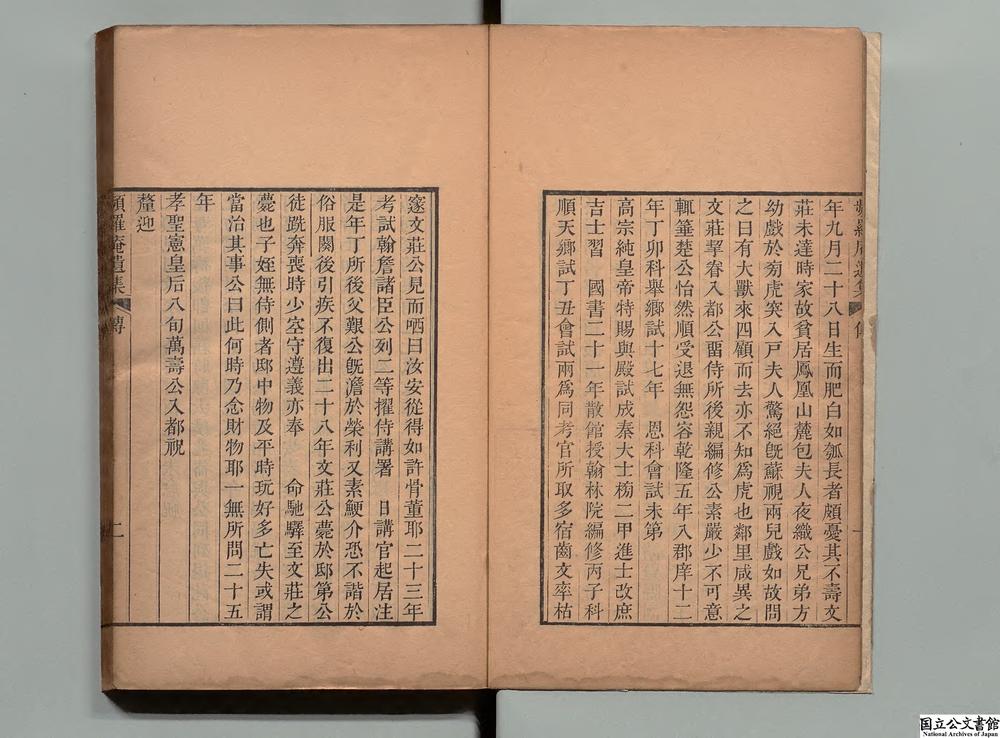 年九月二十八日生而肥白如瓠長者頗憂其不壽文
莊未達時家故貧居鳳凰山麓包夫人夜織公兄弟方
幼戲於旁虎突入戸夫人驚絕旣蘇視兩兒戲如故問
之曰有大獸來四顧而去亦不知爲虎也鄰里咸異之
文莊挈眷入都公畱侍所後親編修公素嚴少不可意
輒箠楚公怡然順受退無怨容乾隆五年入郡庠十二
年丁卯科舉鄉試十七年　恩科會試未第
高宗純皇帝特賜與殿試成秦大士榜二甲進士改庶
吉士習　國書二十一年散館授翰林院編修丙子科
順天鄉試丁丑會試兩爲同考官所取多宿齒文率枯
邃文莊公見而哂曰汝安從得如許骨董耶二十三年
考試翰詹諸臣公列二等擢侍講署　日講官起居注
是年丁所後父艱公旣澹於榮利又素鯁介恐不諧於
俗服闋後引疾不復出二十八年文莊公薨於邸第公
徒跣奔喪時少空守遵義亦奉　命馳驛至文莊之
薨也子姪無侍側者邸中物及平時玩好多亡失或謂
當治其事公曰此何時乃念財物耶一無所問二十五
年
孝聖憲皇后八旬萬壽公入都祝
釐迎
頻羅庵遺集
傳
二
国立公文書館
National Archives of Japan